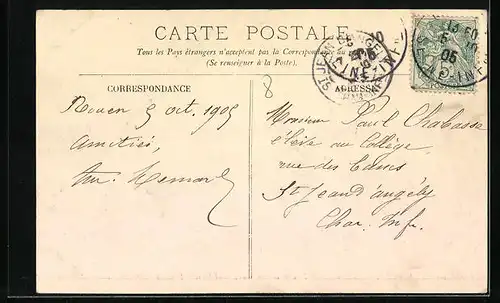 CARTE POSTALE
Tous les Pays étrangers n'acceptent pas la Correspondance au
(Se renseigner à la Poste).
CORRESPONDANCE
ADRESSE
8
Rouen 5 oct. 1905
Amitiés,
Monsieur Paul Chabasse
élève au Collège
rue des
St Jean d'angély
Char. Infr.
ST JEAN D'ANGELY